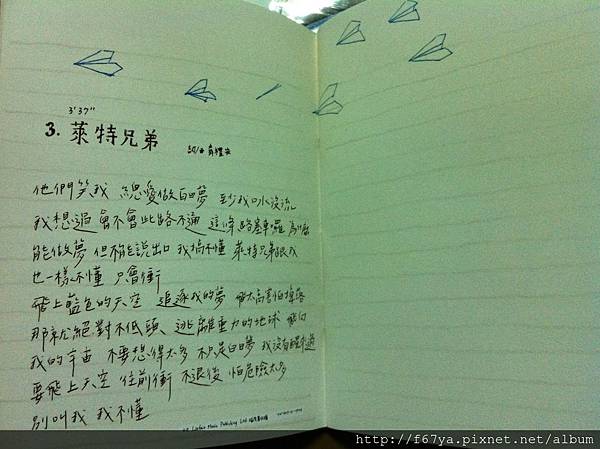 3'37"
3. 萊特兄弟
詞/曲
他們笑我 總愛做白日夢 到我口水沒流
我想過 會不會此路不通 這條路塞車囉 為什麼
能做夢 但不能說出口 我搞不懂 萊特兄弟跟我
也一樣不懂 只會衝
飛上藍色的天空 追逐我的夢 飛太高害怕墜落
那就絕對不低頭 逃離重力的地球 飛向
我的宇宙 不要想得太多 不只是白日夢 我沒有醒來過
要飛上天空 往前衝 不退後 怕危險太多
別叫我 我不懂
Music Publishing Ltd
http://f67ya.pixnet.net/album